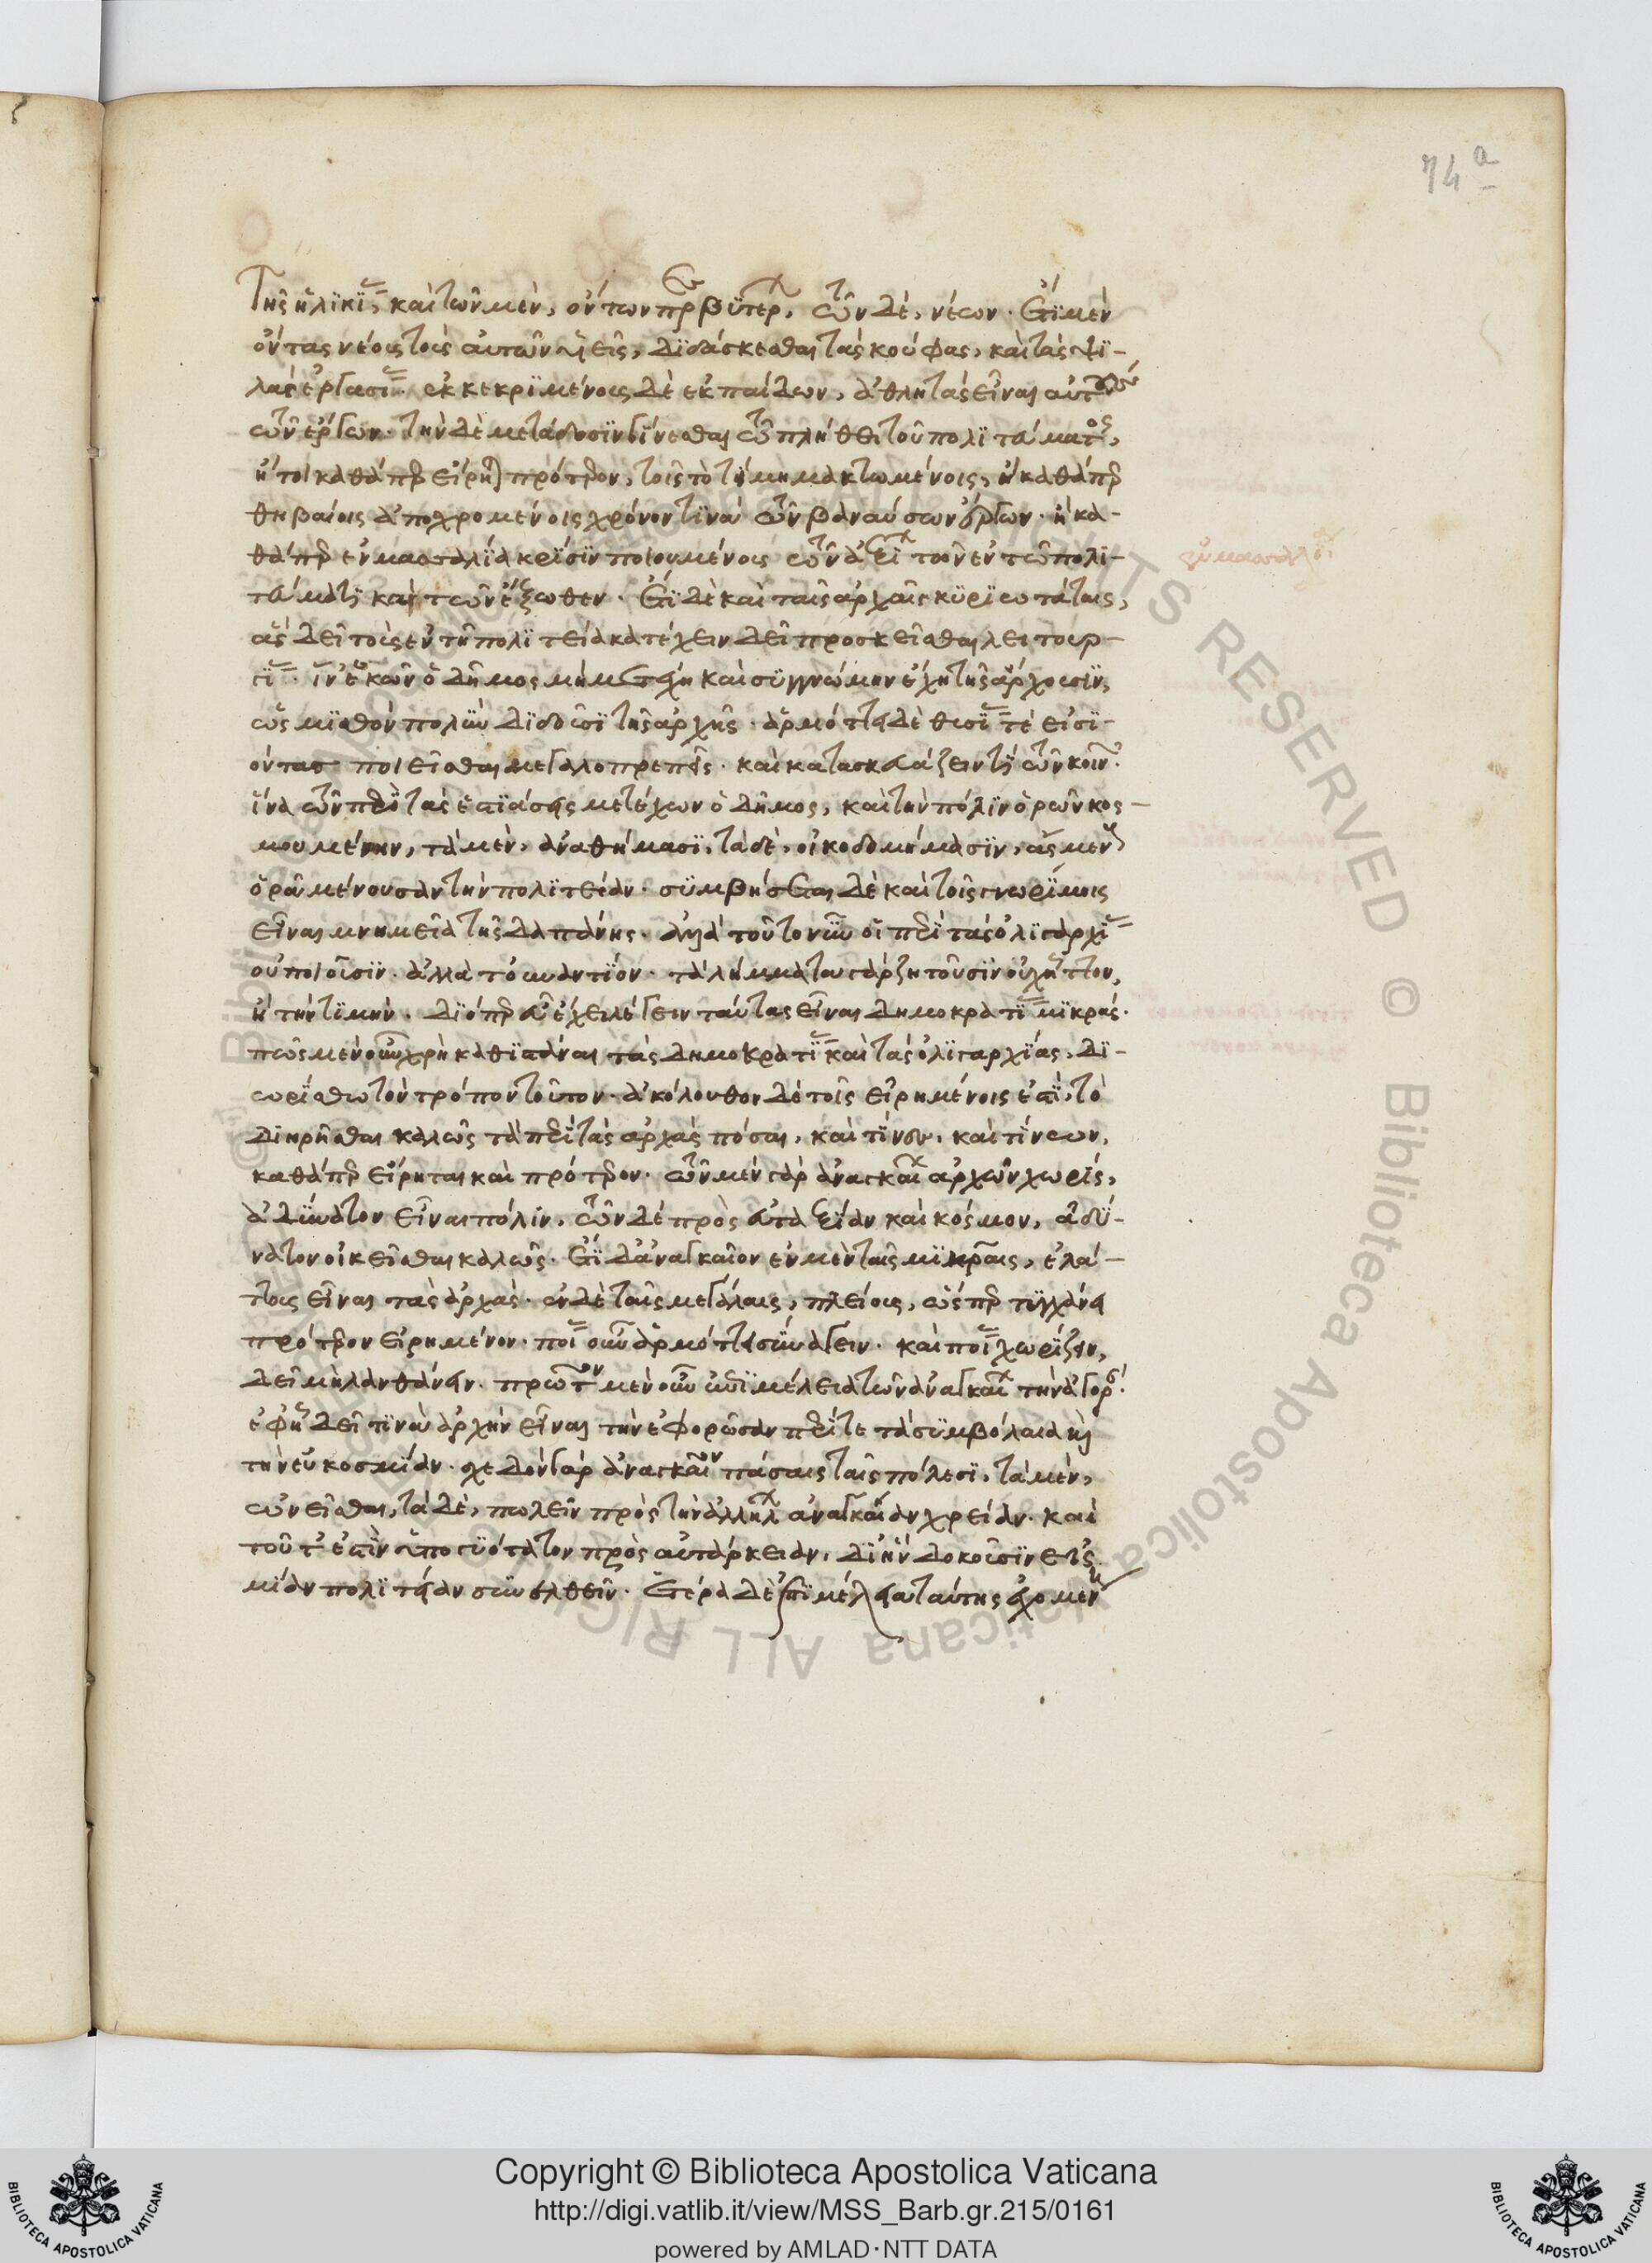 74a
Τῆς ἡλικίας, καὶ τῶν μὲν, ὄντων πρεσβυτέρων, τῶν δὲ, νέων. ἔτι μὲν
ὄντας νέους τοὺς αὐτῶν υἱεῖς, διδάσκεσθαι τὰς κούφας, καὶ τὰς ψι-
λὰς ἐργασίας. ἐκκεκριμένους δὲ ἐκ παίδων, ἀθλητὰς εἶναι αὐτοὺς
τῶν ἔργων. τὴν δὲ μετάδοσιν γίνεσθαι τῶ πλήθει τοῦ πολιτεύματος,
ἤτοι καθάπερ εἴρηται πρότερον, τοῖς τὸ τίμημα κτωμένοις, ἢ καθάπερ
θηβαίοις ἀποχρομένοις χρόνον τινὰ τῶν βαναύσων ἔργων. ἢ κα-
θάπερ ἐν μασσαλία κρίσιν ποιουμένοις τῶν ἀξίων τῶν ἐν τῶ πολι-
τεύματι καὶ τῶν ἔξωθεν. ἔτι δὲ καὶ ταῖς ἀρχαῖς κυριωτάταις,
ἃς δεῖ τοὺς ἐν τῆ πολιτεία κατέχειν δεῖ προσκεῖσθαι λειτουρ-
γίας. ἵν' ἑκὼν ὁ δῆμος μὴ μετέχη καὶ συγγνώμην ἔχη τῆς ἄρχουσιν,
ὡς μισθὸν πολὺν διδοῦσι τῆς ἀρχῆς. ἁρμόττει δὲ θυσίας τὲ εἰσι-
όντας ποιεῖσθαι μεγαλοπρεπεῖς. καὶ κατασκευάζειν τι τῶν κοινῶν.
ἵνα τῶν περὶ τὰς ἑστιάσεις μετέχων ὁ δῆμος, καὶ τὴν πόλιν ὁρῶν κοσ-
μουμένην, τὰ μὲν, ἀναθήμασι, τὰ δὲ, οἰκοδομήμασιν, ἄσμενος
ὁρᾶ μένουσαν τὴν πολιτείαν. συμβήσεται δὲ καὶ τοῖς γνωρίμοις
εἶναι μνημεῖα τῆς δαπάνης. ἀλλὰ τοῦτο νῦν οἱ περὶ τὰς ὀλιγαρχίας
οὐ ποιοῦσιν. ἀλλὰ τοὐναντίον. τὰ λήμματα γὰρ ζητοῦσιν οὐχ ἧττον,
ἢ τὴν τιμήν. διόπερ εὖ ἔχει λέγειν ταύτας εἶναι δημοκρατίας μικράς.
πῶς μὲν οὖν χρὴ καθιστάναι τὰς δημοκρατίας καὶ τὰς ὀλιγαρχίας, δι-
ωρίσθω τὸν τρόπον τοῦτον. ἀκόλουθον δὲ τοῖς εἰρημένοις ἐστὶ, τὸ
διηρῆσθαι καλῶς τὰ περὶ τὰς ἀρχὰς πόσαι, καὶ τίνες, καὶ τίνων,
καθάπερ εἴρηται καὶ πρότερον. τῶν μὲν γὰρ ἀναγκαίων ἀρχῶν χωρὶς,
ἀδύνατον εἶναι πόλιν, τῶν δὲ πρὸς εὐταξίαν καὶ κόσμον, ἀδύ-
νατον οἰκεῖσθαι καλῶς. ἔτι δ' ἀναγκαῖον ἐν μὲν ταῖς μικραῖς, ἐλά-
ττους εἶναι τὰς ἀρχὰς. ἐν δὲ ταῖς μεγάλαις, πλείους, ὥσπερ τυγχάνει
πρότερον εἰρημένον. ποίας οὖν ἁρμόττει συνάγειν. καὶ ποίας χωρίζειν,
δεῖ μὴ λανθάνειν. πρῶτον μὲν οὖν ἐπιμέλεια τῶν ἀναγκαίων τὴν ἀγορὰν.
ἐφ' ἧ δεῖ τινὰ ἀρχὴν εἶναι τὴν ἐφορῶσαν περί τε τὰ συμβόλαια καὶ
τὴν εὐκοσμίαν. σχεδὸν γὰρ ἀναγκαῖον πάσαις ταῖς πόλεσι, τὰ μὲν,
ὠνεῖσθαι, τὰ δὲ, πωλεῖν πρὸς τὴν ἀλλήλων ἀναγκαίαν χρείαν. καὶ
τοῦτ' ἐστὶν ὑπογυότατον πρὸς αὐτάρκειαν, δι' ἣν δοκοῦσιν εἰς
μίαν πολιτείαν συνελθεῖν. ἑτέρα δὲ ἐπιμέλεια ταύτης ἐχομένη
Copyright © Biblioteca Apostolica Vaticana
http://digi.vatlib.it/view/MSS_Barb.gr.215/0161
powered by AMLAD·NTT DATA
BIBLIOTECA APOSTOLICA VATICANA
BIBLIOTECA APOSTOLICA VATICANA